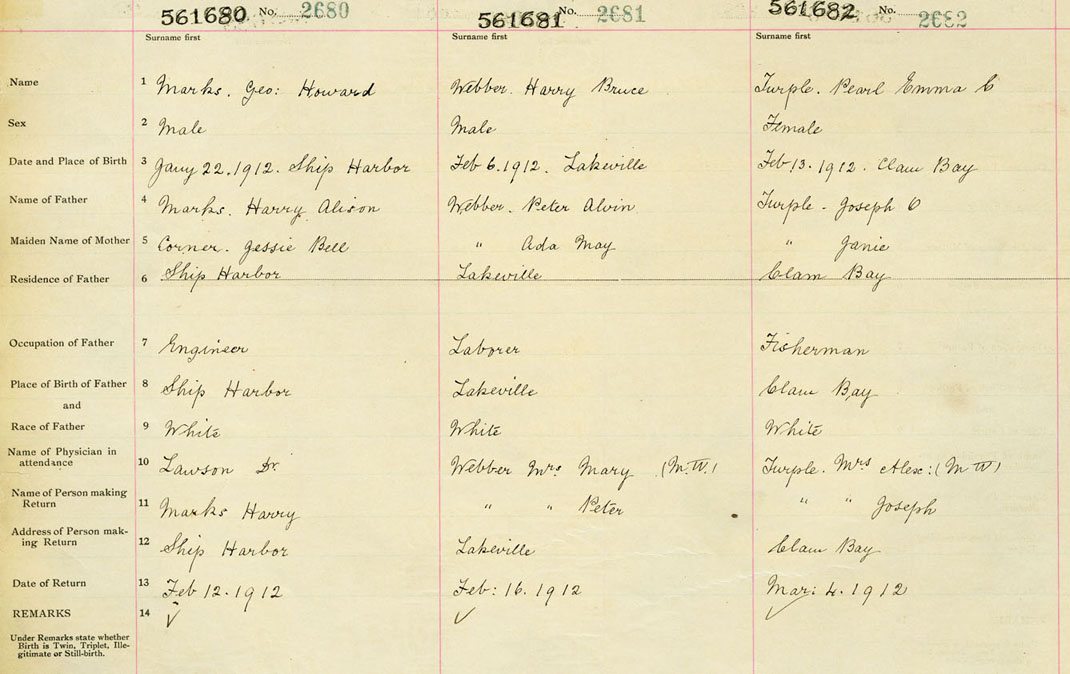 561680 No. 2680 561681 No. 2681 561682 No. 2682
Surname first Surname first Surname first
Name 1 Marks. Geo: Howard Webber. Harry Bruce Turple. Pearl Emma C
Sex 2 Male Male Female
Date and Place of Birth 3 Jany 22. 1912. Ship Harbor Feb 6. 1912. Lakeville Feb 13. 1912. Clam Bay
Name of Father 4 Marks. Harry Alison Webber. Peter Alvin Turple. Joseph C
Maiden Name of Mother 5 Corner. Jessie Bell " Ada May " Janie
Residence of Father 6 Ship Harbor Lakeville Clam Bay
Occupation of Father 7 Engineer Laborer Fisherman
Place of Birth of Father 8 Ship Harbor Lakeville Clam Bay
and
Race of Father 9 White White White
Name of Physician in
attendance 10 Lawson Dr Webber Mrs Mary (M.W.) Turple. Mrs Alex: (M W)
Name of Person making
Return 11 Marks Harry " " Peter " " Joseph
Address of Person mak-
ing Return 12 Ship Harbor Lakeville Clam Bay
Date of Return 13 Feb 12. 1912 Feb: 16. 1912 Mar: 4. 1912
REMARKS 14 ✓ ✓ ✓
Under Remarks state whether
Birth is Twin, Triplet, Ille-
gitimate or Still-birth.